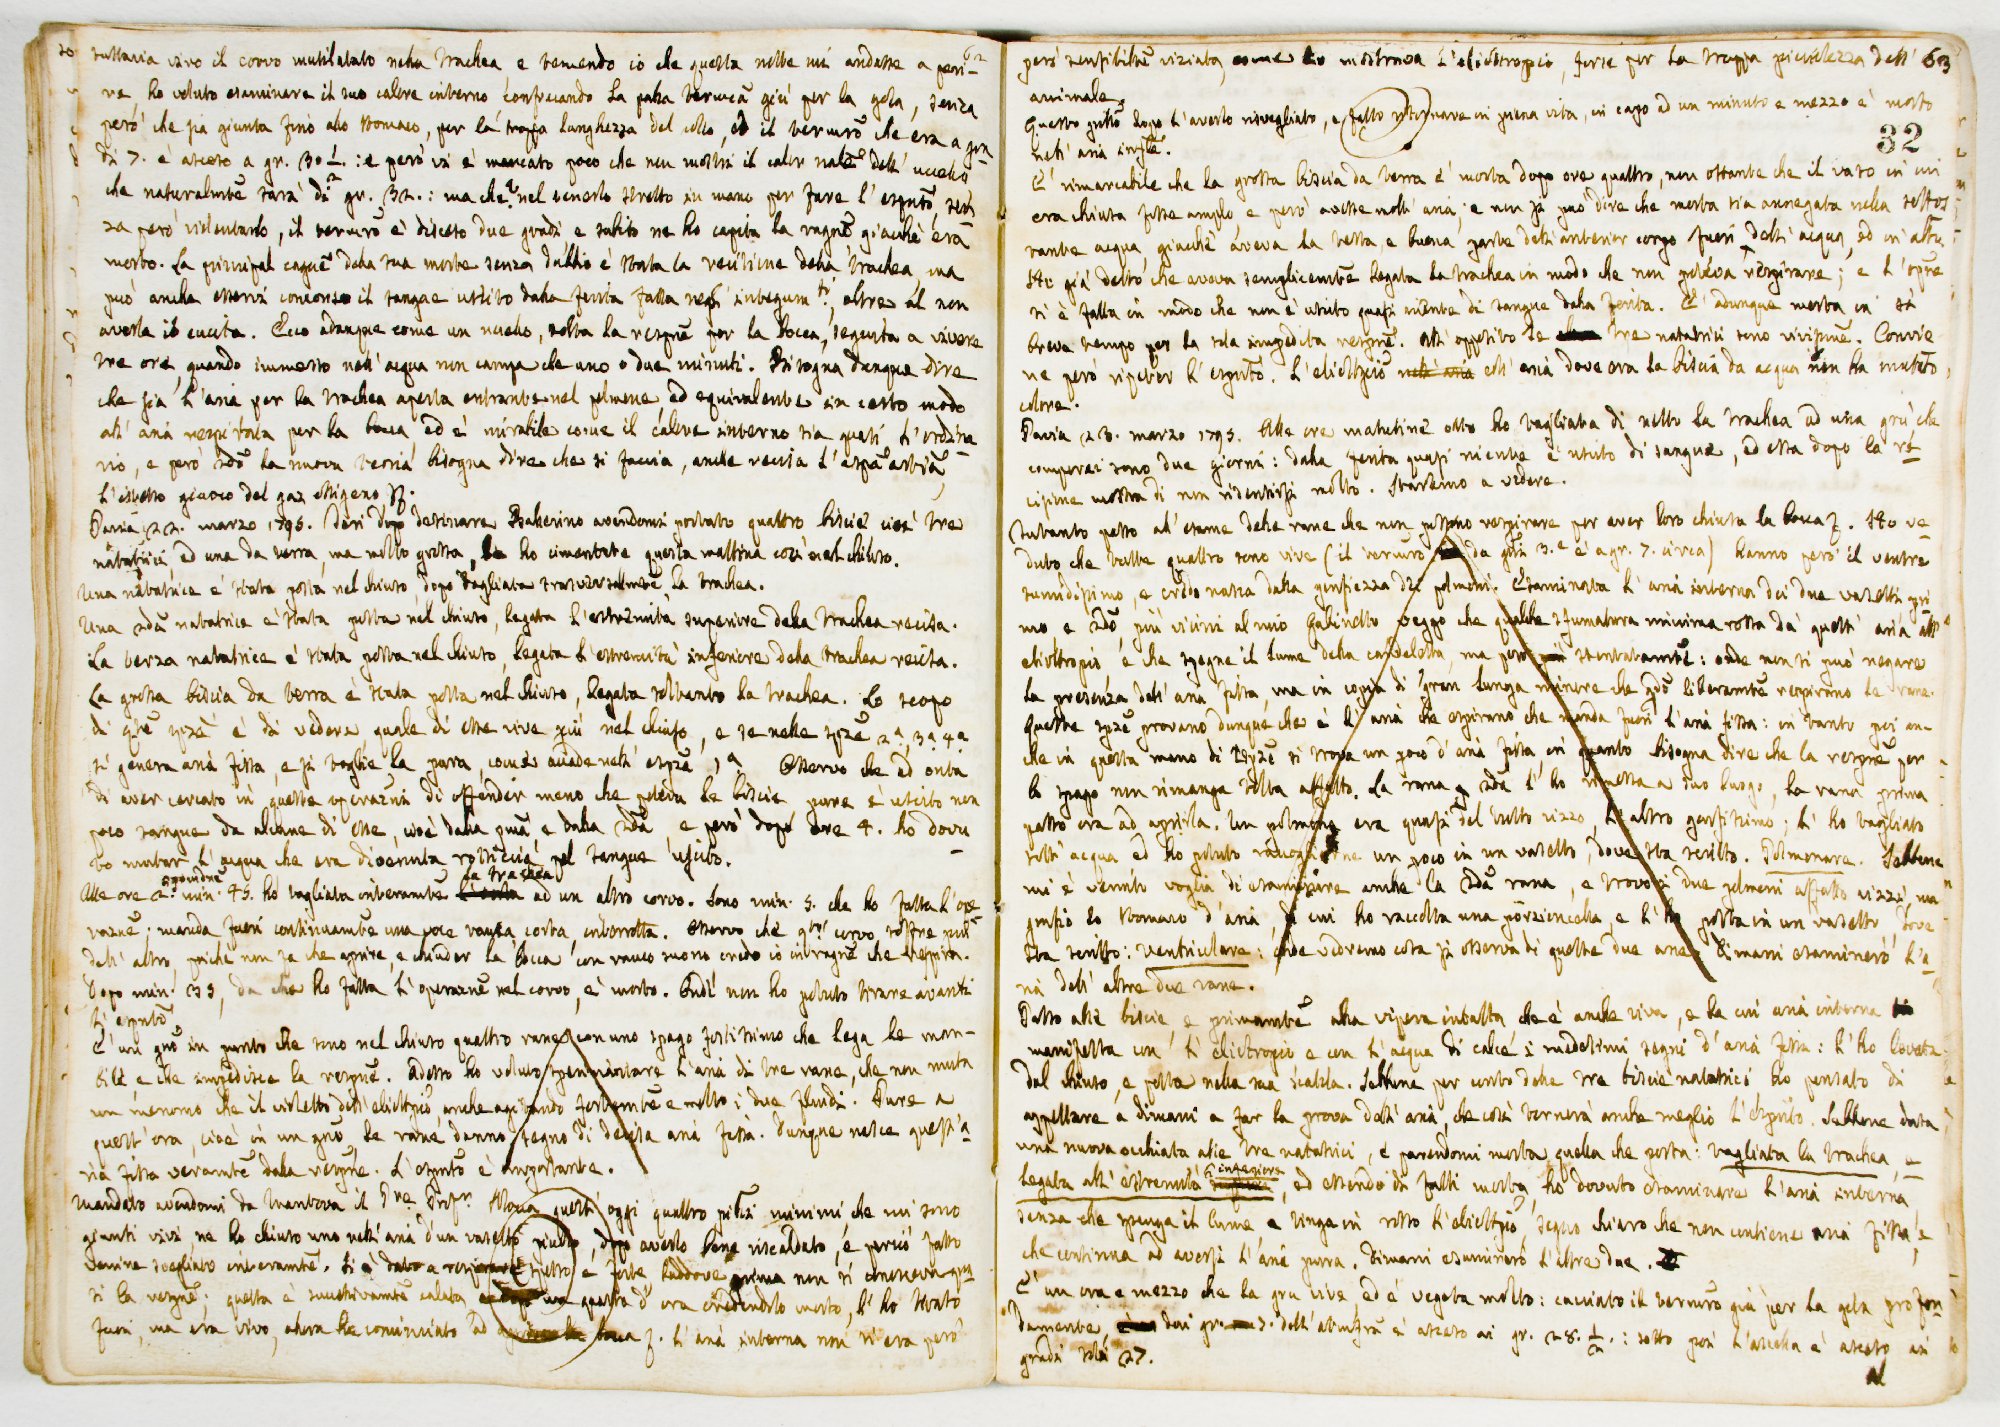 62
tuttavia vivo il corvo mutilatato nella trachea, e temendo io che questa notte mi andasse a peri-
re, ho voluto esaminare il suo calore interno conficcando la palla termica giù per la gola, senza
però che sia giunta fino allo stomaco, per la troppa lunghezza del collo, ed il termro che era a gra
di 7. è asceso a gr. 30 1/2. : e però vi è mancato poco che non mostri il calor nale dell' uccello
che naturalmte sarà di gr. 32. : ma che nel tenerlo stretto in mano per fare l' esprto, sen
za però violentarlo, il termro è disceso due gradi e subito ne ho capita la ragne giacchè era
morto. La principal cagne della sua morte senza dubbio è stata la recisione della trachea, ma
può anche esservi concorso il sangue uscito dalla ferita fatta negl' integumti, oltre al non
averla io cucita. Ecco adunque come un uccello, tolta la respne per la bocca, seguita a vivere
tre ore, quando immerso nell' acqua non campa che uno o due minuti. Bisogna dunque dire
che sia l' aria per la trachea aperta entrante nel polmone ed equivalente in certo modo
all' aria respirata per la bocca, ed è mirabile come il calore interno sia quasi l' ordina
rio, e però 2do la nuova teoria bisogna dire che si faccia, anche recisa l' aspra arteria,
l' istesso giuoco del gaz ossigeno
Pavia 22. marzo 1795. Ieri dopo desinare Balterino avendomi portato quattro biscie cioè tre
natatrici, ed una da terra, ma molto grossa, le ho cimentate questa mattina così nel chiuso.
Una natatrice è stata posta nel chiuso, dopo tagliata trasversalmte la trachea.
Una 2da natatrice è stata posta nel chiuso, legata l' estremità superiore della trachea recisa.
La terza natatrice è stata posta nel chiuso, legata l' estremità inferiore della trachea recisa.
La grossa biscia da terra è stata posta nel chiuso, legata soltanto la trachea. Lo scopo
di qste spze è di vedere quale di esse vive più nel chiuso, e se nelle spze 2a, 3a, 4a
si genera aria fissa, e si toglie la pura, come accade nell' esprza 1a Osservo che ad onta
di aver cercato in queste operazni di offender meno che poteva le biscie, pure è uscito non
poco sangue da alcune di esse, cioè dalla pma e dalla 2da, e però dopo ore 4. ho dovu
to mutar l' acqua che era divenuta rossiccia pel sangue uscito.
Alle ore 2. pomdne min. 45. ho tagliata interamte la trachea ad un altro corvo. Sono min. 5. che ho fatta l' ope
razne: manda fuori continuamte una voce rauca, corta, interrotta. Osservo che qsto corvo soffre più
dell' altro, poichè non fa che aprire, e chiuder la bocca con rauco suono credo io in ragne che respira.
Dopo min. 35, da che ho fatta l' operazne nel corvo, è morto. Quindi non ho potuto tirare avanti
l' esprto
È un gno in punto che sono nel chiuso quattro rane con uno spago fortissimo che lega le man-
dibole e che impedisce la respne. Adesso ho voluto sperimentare l' aria di tre rane, che non muta
un menomo che il violetto dell' eliotrpio, anche agitando fortemte e molto i due fluidi. Pure a
quest' ora, cioè in un gno, le rane danno segno di decisa aria fissa. Dunque nasce quest' a
ria fissa veramte dalla respne. L' esprto è importante.
Mandato avendomi da Mantova il Pre. Profr. Mona questi oggi quattro minimi, che mi sono
giunti vivi, ne ho chiuso uno nell' aria d' un vasetto piccolo, dopo averlo bene riscaldato, e perciò fatto
venire svegliato interamte. Si è dato a respirare spesso e forte laddove prima non si conosceva qua
si la respne; questa è successivamte calata quarto d' ora credendolo morto, l' ho tirato
fuori, ma era vivo, allora ha cominciato ad bocca L' aria interna non vi era però
63
32
però sensibilmte viziata, come lo mostrava l' eliotropio, forse per la troppa picciolezza dell'
animale.
Questo dopo l' averlo risvegliato, e fatto ritornare in piena vita, in capo ad un minuto e mezzo è morto
nell' aria
E' rimarcabile che la grossa biscia da terra è morta dopo ore quattro, non ostante che il vaso in cui
era chiusa fosse amplo e però avesse molt' aria; e non si può dire che morta sia annegata nella sottos
tante acqua, giacchè aveva la testa, e buona parte dell' anterior corpo fuori dell' acqua, ed in oltre
Ho già detto che aveva semplicemte legata la trachea in modo che non poteva respirare; e l' opne
si è fatta in modo che non è uscito quasi niente di sangue dalla ferita. E' adunque morta in sì
breve tempo per la sola impedita respne. All' opposito le tre natatrici sono vivissime. Convie
ne però ripeter l' esprto. L' eliotrpio nell' aria dove era la biscia da acqua non ha mutato
colore.
Pavia 23. marzo 1795. Alle ore matutine otto ho tagliata di netto la trachea ad una grù che
comperai sono due giorni: dalla ferita quasi niente è uscito di sangue, ed essa dopo la re
cisione mostra di non risentirsi molto. Staremo a vedere.
Intanto passo all' esame delle rane che non possono respirare per aver loro chiusa la bocca Ho ve
duto che tutte quattro sono vive (il termro da 3.a è a gr. 7. circa) hanno però il ventre
tumidissimo, e credo nasca dalla gonfiezza dei polmoni. Esaminata l' aria interna dei due vasetti pri
mo e 2do, più vicini al mio Gabinetto veggo che qualche sfumatura minima rossa dà quest' aria all'
eliotropio e che spegne il lume della candeletta, ma stentatamte: onde non si può negare
la presenza dell' aria fissa, ma in copia di gran lunga minore che qdo liberamte respirano le rane.
Queste spze provano dunque che è l' aria che espirano che manda fuori l' aria fissa: in tanto poi an-
che in questa mano di spze si trova un poco d' aria fissa, in quanto bisogna dire che la respne per
lo spago non rimanga tolta affatto. La rana 2da l' ho rimessa a suo luogo, la rana prima
passo ora ad aprirla. Un polmone era quasi del tutto vizzo, l' altro gonfissimo; l' ho tagliato
sott' acqua ed ho potuto raccoglierne un poco in un vasetto, dove sta scritto. Polmonare. Sebbene
mi è venuto voglia di esaminare anche la 2da rana, e trovo i due polmoni affatto vizzi, ma
gonfio lo stomaco d' aria, di cui ho raccolta una porzioncella, e l' ho posta in un vasetto dove
sta scritto: ventricolare: onde vedremo cosa si osserva di queste due arie. Dimani esaminerò l' a
ria dell' altre due rane.
Passo alle biscie, e primamte alla vipera intatta che è anche viva, e la cui aria interna
manifesta con l' eliotropio e con l' acqua di calce i medesimi segni d' aria fissa: l' ho levata
dal chiuso, e posta nella sua scatola. Sebbene per conto delle tre biscie natatrici ho pensato di
aspettare a dimani a far la prova dell' aria, che così tornerà anche meglio l' esprto. Sebbene data
una nuova occhiata alle tre natatrici, e parendomi morta quella che porta: tagliata la trachea, e
legata all' estremità inferiore, ed essendo di fatti morta, ho dovuto esaminare l' aria interna
senza che spenga il lume e tinga in rosso l' eliotrpio, segno chiaro che non contiene aria fissa, e
che continua ad aversi l' aria pura. Dimani esaminerò l' altre due.
È un ora e mezzo che la gru vive, ed è vegeta molto: cacciato il termro giù per la gola profon
damente, dai gr. 7. dell' atmosfra è asceso ai gr. 28. 1/2. : sotto poi l' ascella è asceso ai
gradi soli 27.